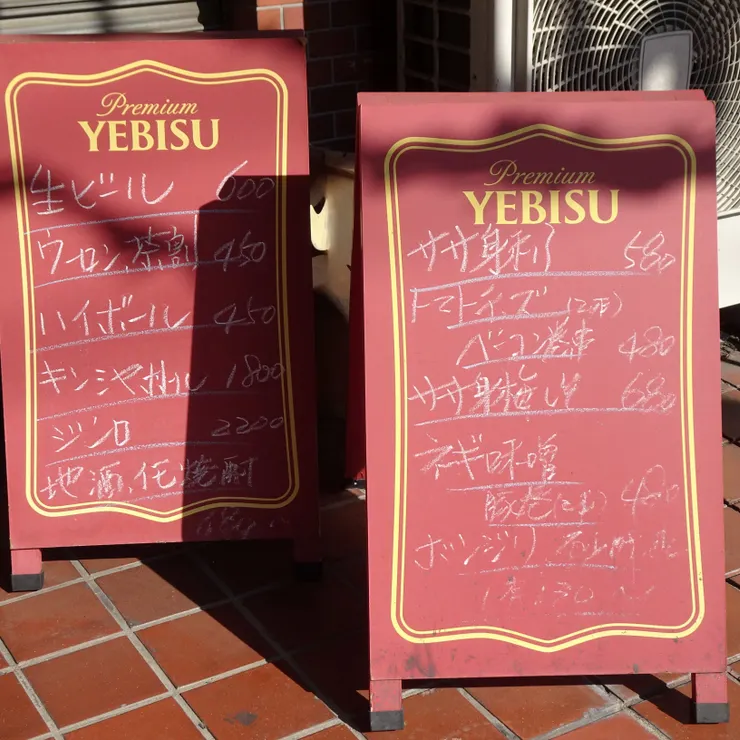 Premium
YEBISU
生ビール 600
ウーロン茶割 450
ハイボール 450
キンミヤボトル 1800
ジンロ 2200
地酒、他焼酎
Premium
YEBISU
ササ身刺し 580
トマトチーズ(2本)
ベーコン巻串 480
ササ身梅しそ 680
ネギ味噌
豚巻(2本) 480
ボンジリ